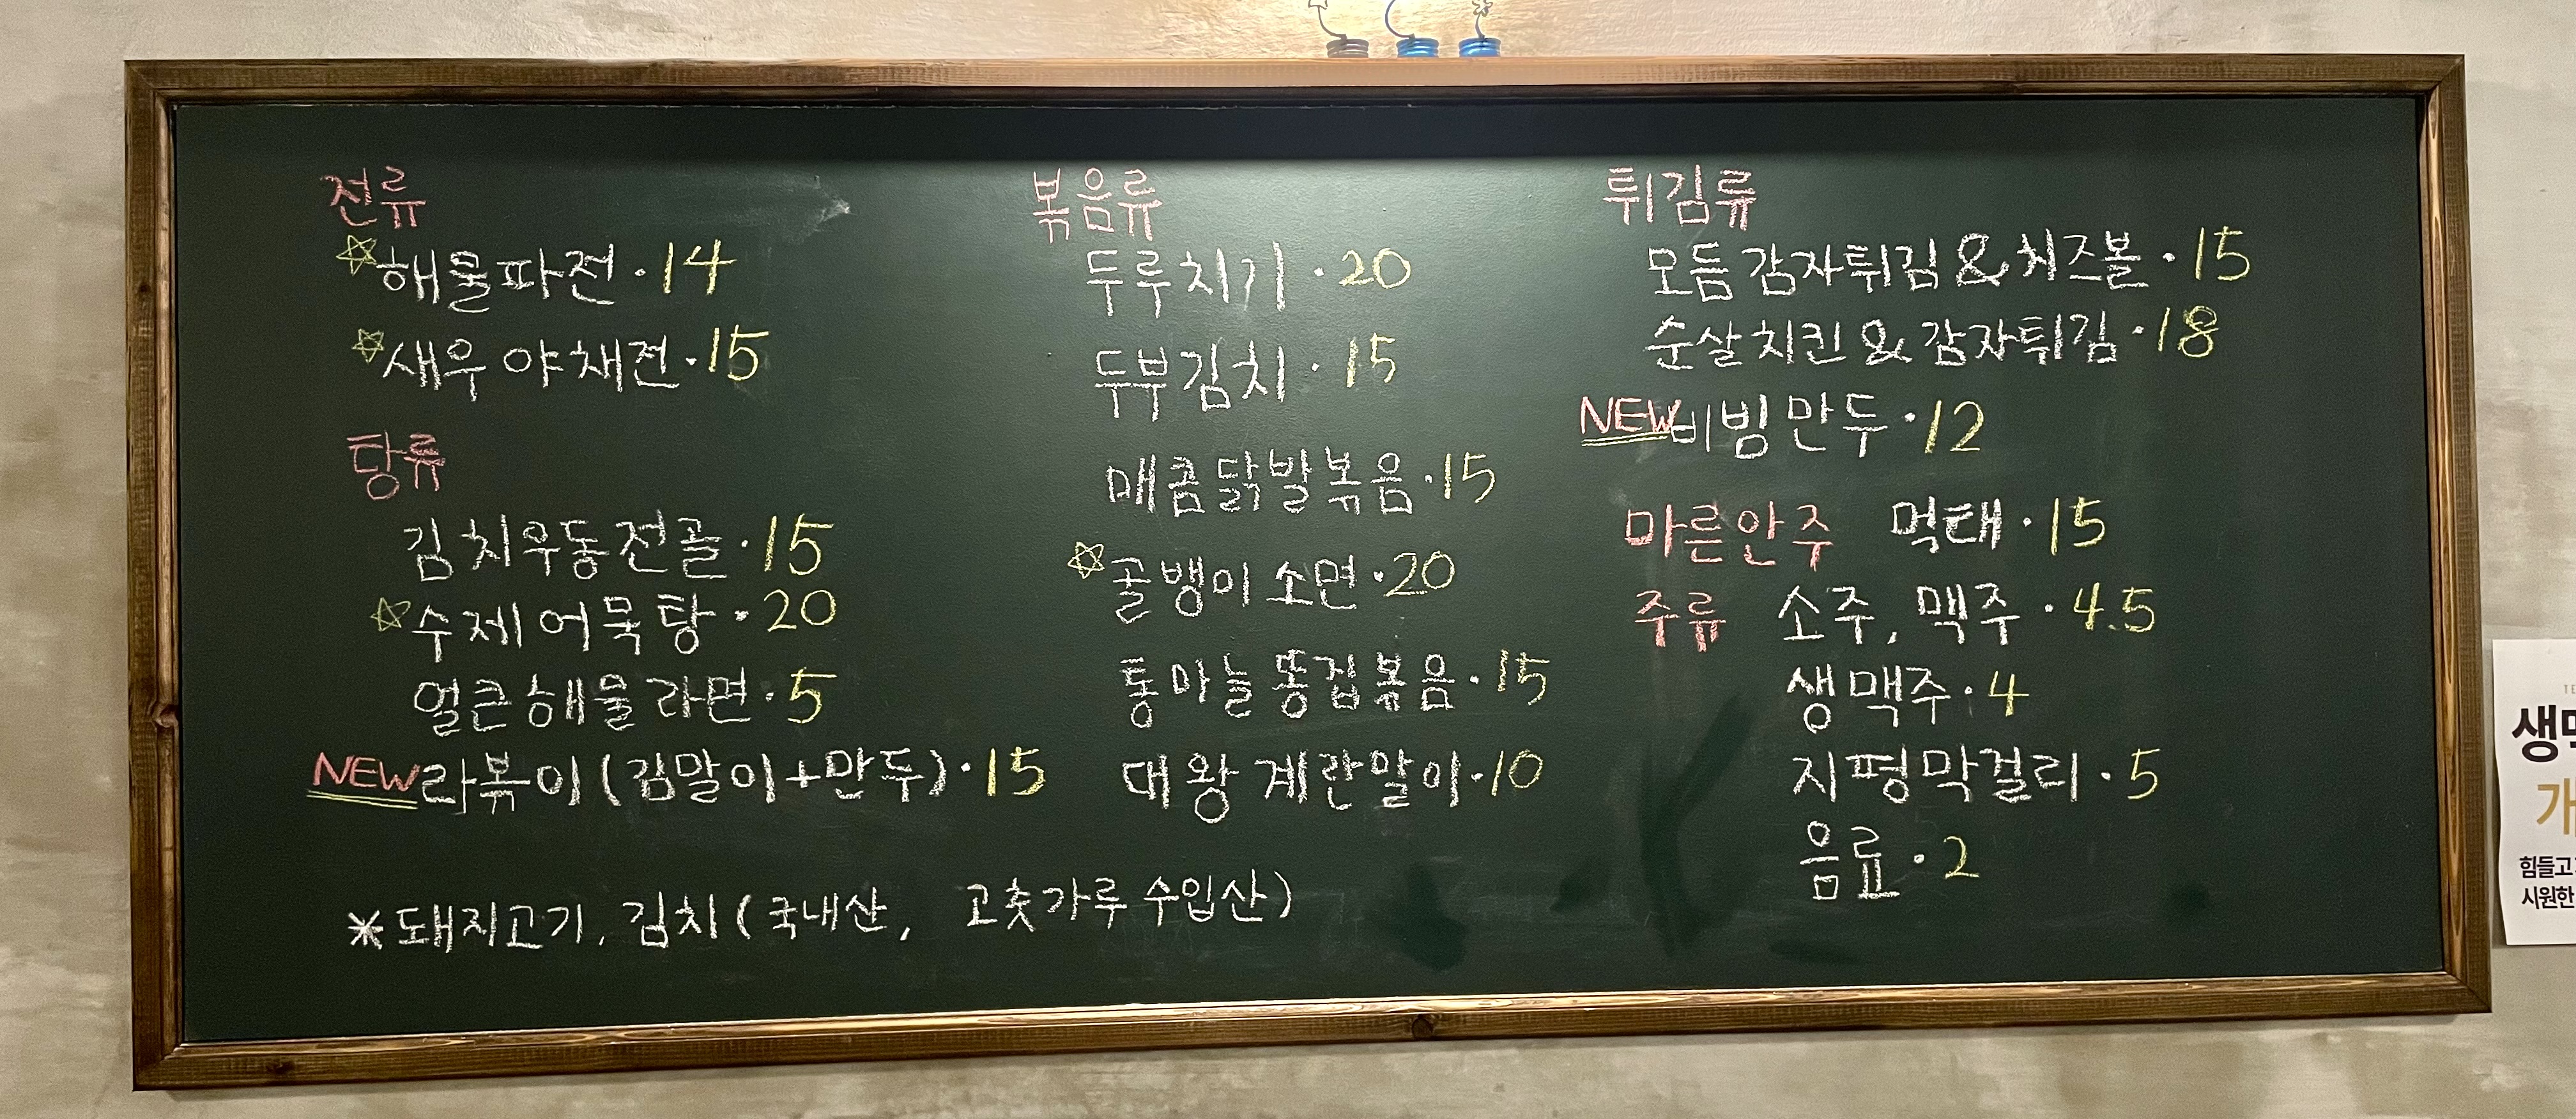 전류
☆해물파전·14
☆새우야채전·15
탕류
김치우동전골·15
☆수제어묵탕·20
얼큰해물라면·5
NEW라볶이(김말이+만두)·15
볶음류
두루치기·20
두부김치·15
매콤닭발볶음·15
☆골뱅이소면·20
통마늘똥집볶음·15
대왕계란말이·10
튀김류
모듬감자튀김&치즈볼·15
순살치킨&감자튀김·18
NEW비빔만두·12
마른안주 먹태·15
주류 소주, 맥주·4.5
생맥주·4
지평막걸리·5
음료·2
*돼지고기, 김치(국내산, 고춧가루 수입산)
힘들고
시원한